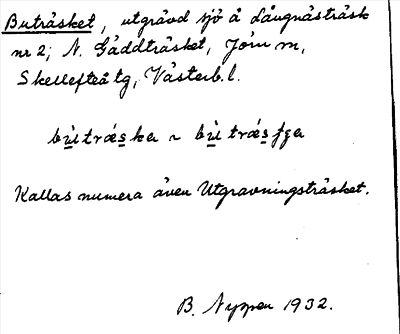 Buträsket, utgrävd sjö å Långnästräsk
nr 2; N. Gäddträsket, Jörn sn,
Skellefteå tg, Västerb. l.
Kallas numera även Utgravningsträsket.
B. Nyppen 1932.